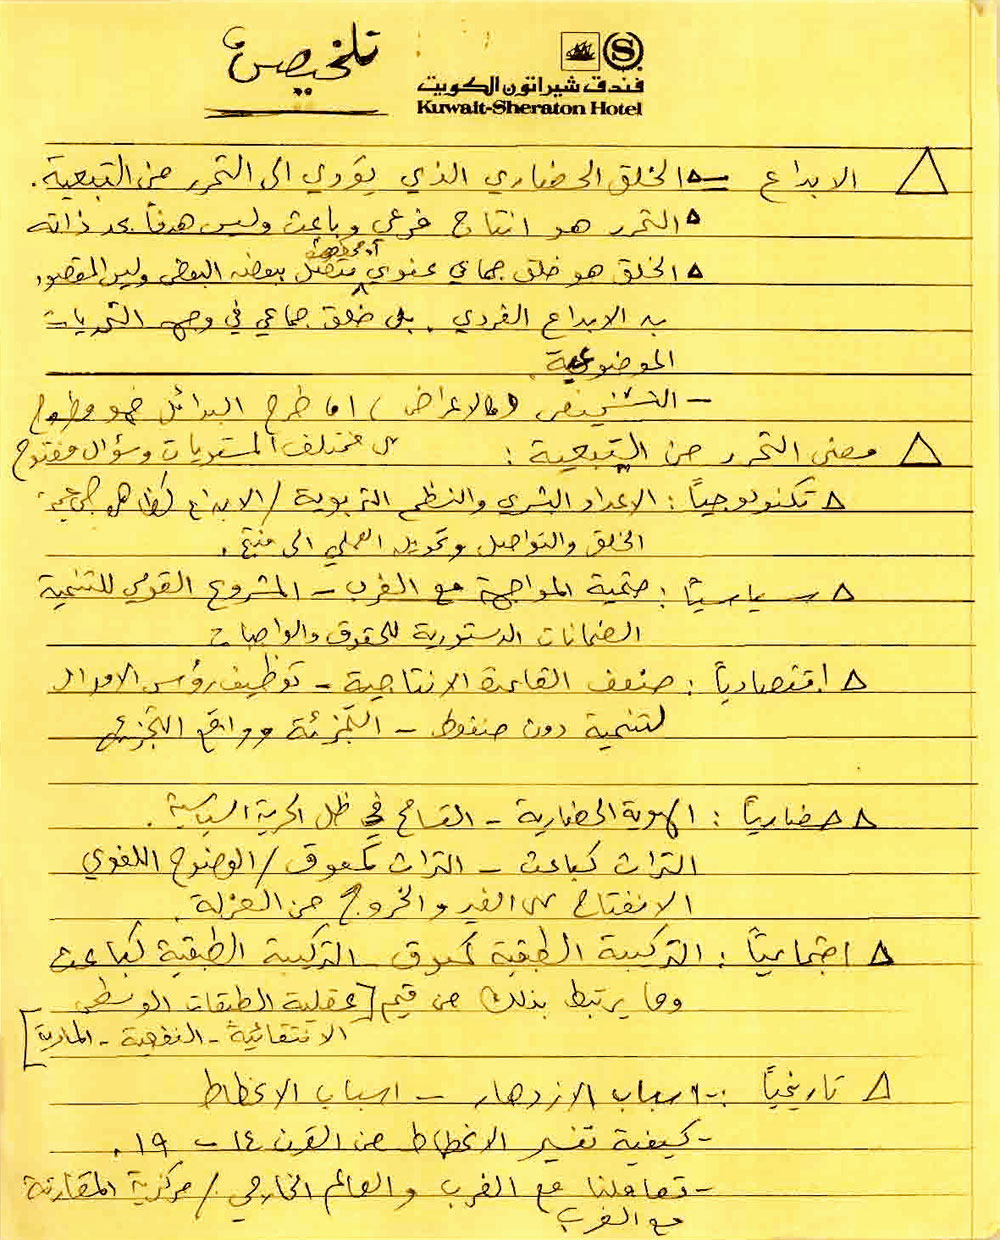 تلخيص
فندق شيراتون الكويت
Kuwait-Sheraton Hotel
الابداع = الخلق الحضاري الذي يؤدي الى التحرر من التبعية.
التحرر هو انتاج فرعي وباعث وليس هدفاً بحد ذاته
الخلق هو خلق جماعي عفوي متصل ببعضه البعض وليس المقصود
به الابداع الفردي . بل خلق جماعي في وجه التحديات
الموضوعية.
- التشخيص (الاعراض) اما طرح البدائل فهو مطروح
على مختلف المستويات وسؤال مفتوح
معنى التحرر من التبعية :
تكنولوجياً : الاعداد البشري والنظم التربوية / الابداع كظاهرة جماعية
الخلق والتواصل وتحويل العملي الى منتج .
سياسياً : حتمية المواجهة مع الغرب - المشروع القومي للتنمية
الضمانات الدستورية للحقوق والواجبات
اقتصادياً : ضعف القاعدة الانتاجية - توظيف رؤس الاموال
لتنمية دون ضغوط - التجزئة وواقع التجزئة
حضارياً : الهوية الحضارية - التسامح في ظل الحرية السياسية .
التراث كباعث - التراث كمعوق / الوضوح اللغوي
الانفتاح على الغير والخروج من العزلة .
اجتماعياً : التركيبة الطبقية كمعوق - التركيبة الطبقية كباعث
وما يرتبط بذلك من قيم [عقلية الطبقات الوسطى
الانتقائية - النفعية - المادية]
تاريخياً : - اسباب الازدهار - اسباب الانحطاط
- كيفية تفسير الانحطاط من القرن ١٤ - ١٩ .
- تعاملنا مع الغرب والعالم الخارجي / مركزية المقارنة
مع الغرب